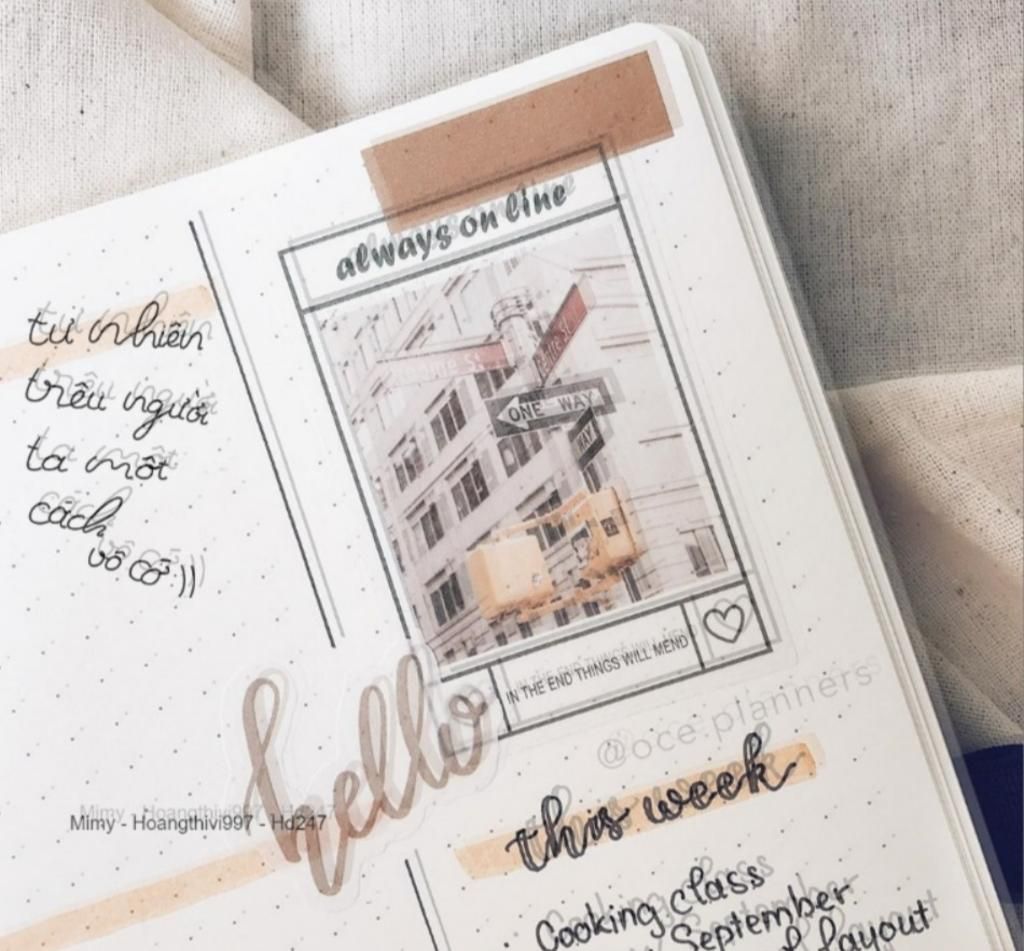 always on line
tự nhiên
trêu người
ta một
cách
vô cớ :))
ONE WAY
WAY
IN THE END THINGS WILL MEND
hello
@oce.planners
Mimy - Hoangthivi997 - Hd247
this week
Cooking class
September
layout